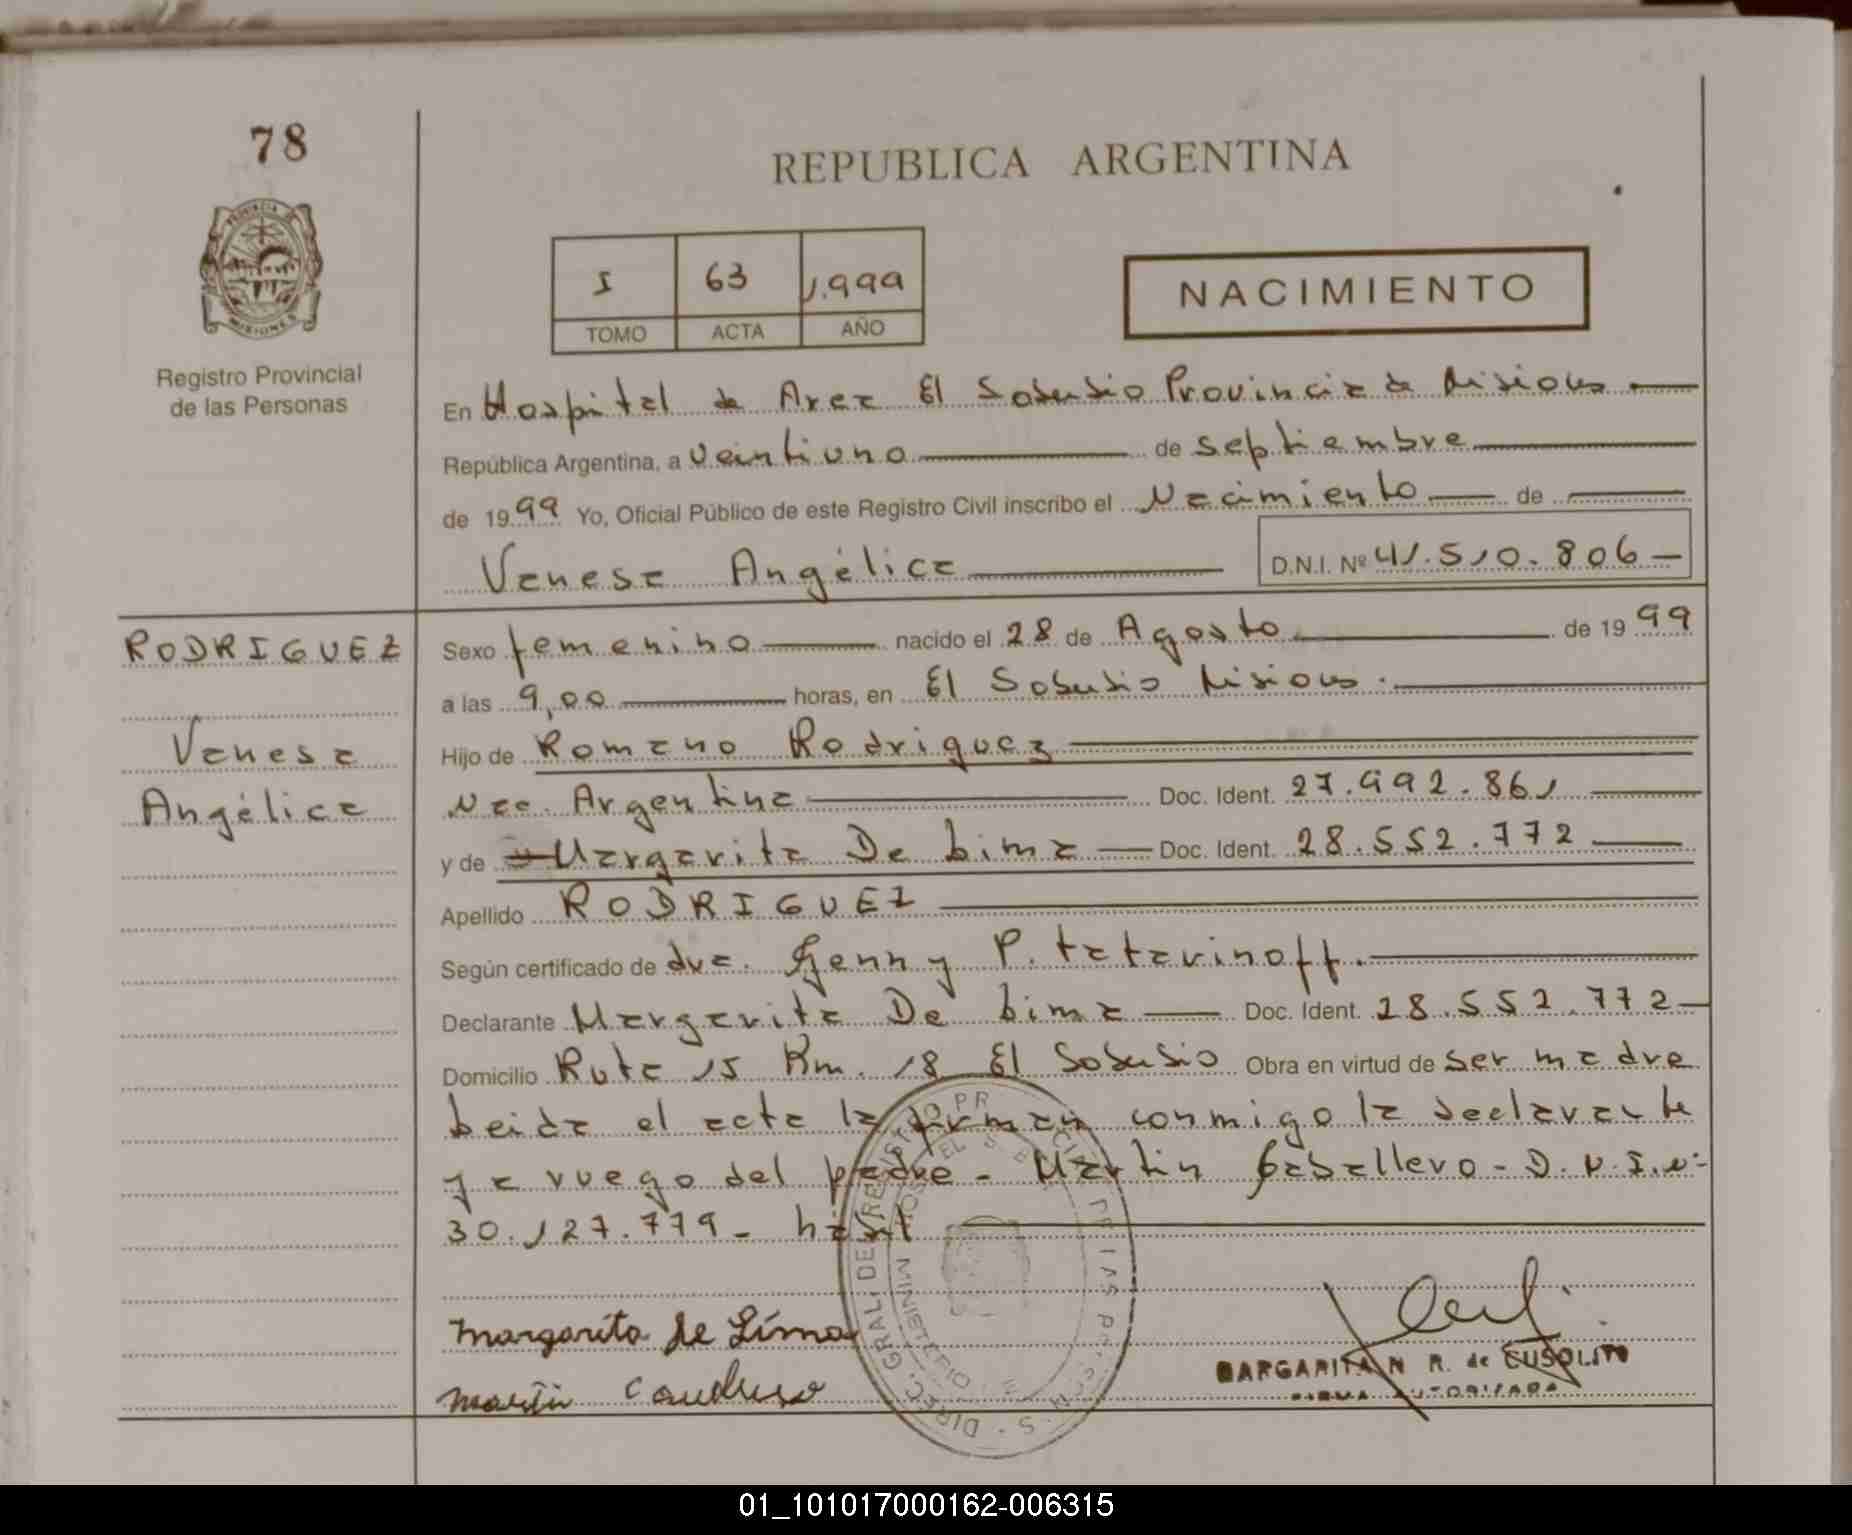 78
REPUBLICA ARGENTINA
PROVINCIA DE
MISIONES
Registro Provincial
de las Personas
I 63 1.999
TOMO ACTA AÑO
NACIMIENTO
En Hospital de Area El Soberbio Provincia de Misiones
República Argentina, a veintiuno de septiembre
de 1999 Yo, Oficial Público de este Registro Civil inscribo el Nacimiento de
Vanesa Angélica D.N.I. Nº 41.510.806
RODRIGUEZ
Vanesa
Angélica
Sexo femenino nacido el 28 de Agosto de 1999
a las 9,00 horas, en El Soberbio Misiones.
Hijo de Romano Rodriguez
Nac. Argentina Doc. Ident. 27.992.861
y de Margarita De Lima Doc. Ident. 28.552.772
Apellido RODRIGUEZ
Según certificado de dra. Genny P. tatarinoff.
Declarante Margarita De Lima Doc. Ident. 28.552.772
Domicilio Ruta 15 Km. 18 El Soberbio Obra en virtud de ser madre
Leida el acta la firman conmigo la declarante
y a ruego del padre - Martin Caballero - D.N.I.Nº
30.127.779 -
Margarita de Lima
Martin
MARGARITA N R. de CUSOLITO
FIRMA AUTORIZADA
DIREC. GRAL. DE REGISTRO PR
01_101017000162-006315